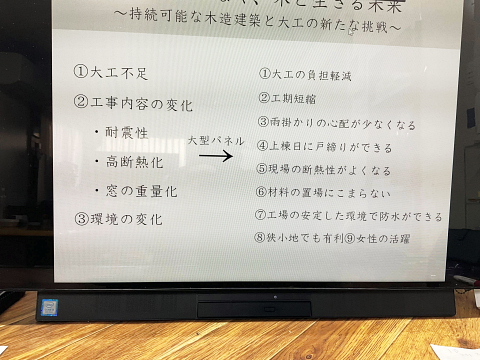 木と生きる未来
～持続可能な木造建築と大工の新たな挑戦～
①大工不足
②工事内容の変化
・耐震性
・高断熱化
・窓の重量化
③環境の変化
大型パネル
→
①大工の負担軽減
②工期短縮
③雨掛かりの心配が少なくなる
④上棟日に戸締りができる
⑤現場の断熱性がよくなる
⑥材料の置場にこまらない
⑦工場の安定した環境で防水ができる
⑧狭小地でも有利⑨女性の活躍